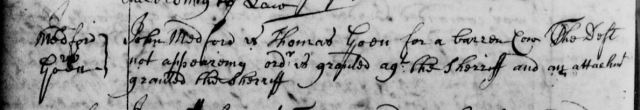 according to Law
Medford
vs
Goen
John Medford vs Thomas Goen for a barren Cow The Deft
not appearing ordr is granted agt the Sherriff and an attachmt
granted the Sherriff